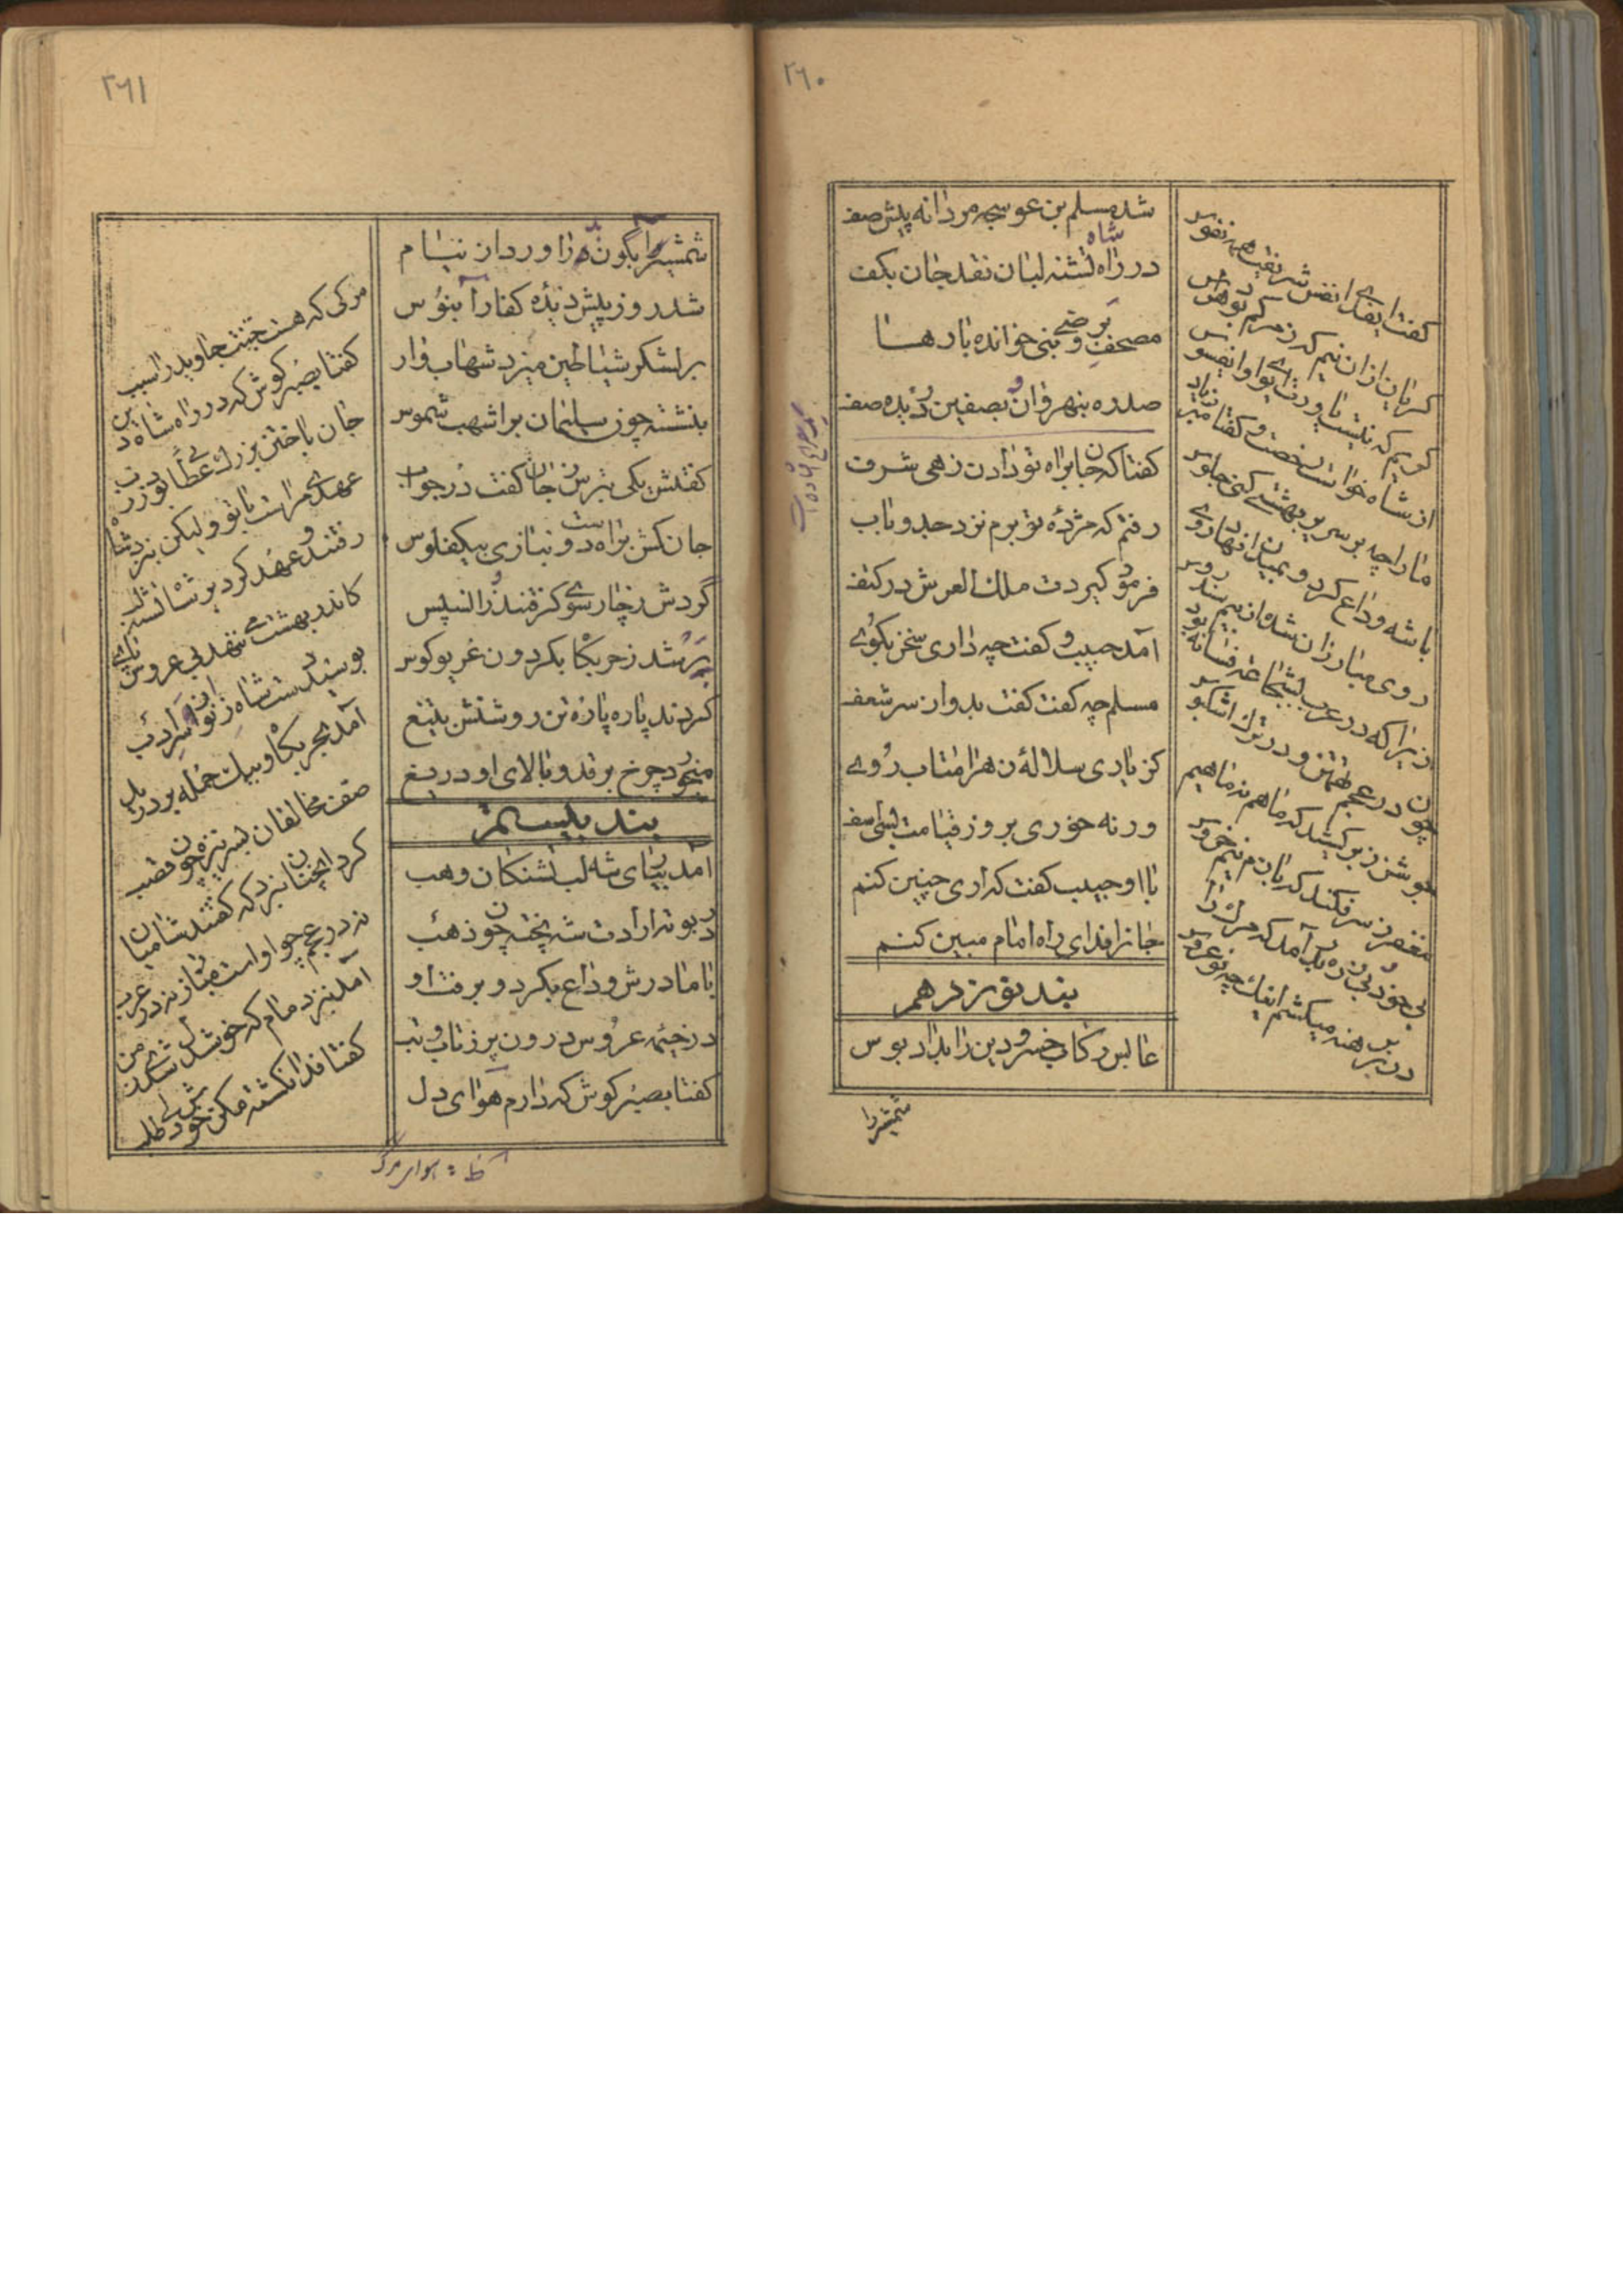 ٢٦٠
شد مسلم بن عوسجه مردانه پیش صف
در راه شاه تشنه لبان نقد جان بکف
مصحف بر وصی نبی خوانده بارها
صدره بنهروان و بصفین دریده صف
کفتا که جان براه تو دادن زهی شرف
رفتم که مژدهٔ تو برم نزد جد و باب
فرمود کیردت ملك العرش در کنف
آمد حبیب و کفت چه داری سخن بکوے
مسلم چه کفت کفت بدو از سر شعف
کز یاری سلالهٔ زهرا متاب روے
ورنه خوری بروز قیامت بسی اسف
با او حبیب کفت که آری چنین کنم
جانرا فدای راه امام مبین کنم
بند نوزدهم
عابس رکاب خسرو دین را بداد بوس
کفتا یفدای نفس شریفت همه نفوس
کریان ازان نیم که ز مرکم بود هراس
کریم که نیست یاورت ای بوا وانیس و بس
از شاه خواست رخصت و کفتا
ما را چه بر سریر بهشتی کنی جلوس
با شه وداع کرد و بمیدان نهاد روے
روی مبارزان شده از بیم سندروس
زیرا که در عرب بشجاعت فسانه بود
چون در عجم تهمتن و در ترك اشکبوس
جوشن ز بر کشید که ماهم نه ماهیم
مغفر ز سر فکند که بازم نیم خروس
بی خود و بی زره بدر آمد که مرك را
در بر برهنه میکشم اینك چو نوعروس
شمشیر را
٢٦١
شمشیر آبگون چو در آورد از نیام
شد روز پیش دیده کفار آبنوس
بر لشکر شیاطین میزد شهاب وار
بنشسته چون سلیمان بر اشهب شموس
کفتش یکی بترس ز جان کفت در جواب
جان کش براه دوست نیازی بیکفلوس
کردش ز چارسوے کرفتند زان سپس
پر شد ز حربکاه بکردون غریو کوس
کردند پاره پاره تن روشنش بتیغ
میخورد چرخ بر قد و بالای او دریغ
بند بیستم
آمد بپای شه لب تشنکان وهب
در بوته ارادت شه پخته چون ذهب
با مادرش وداع بکرد و برفت او
در خیمه عروس درون پر ز تاب و تب
کفتا بصبر کوش که دارم هوای دل
مرکی که هست جنت جاوید را سبب
کفتا بصبر کوش که در راه شاه دین
جان باختن بزرك عطائی بود ز رب
عهدی مراست با تو ولیکن بنزد شاه
رفتند و عهد کرد بر شاه تشنه لب
کاندر بهشت می ننهد بی عروس پاے
بوسید دست شاه ز زانو از ادب
آمد بحربکاه و بیك حمله بر درید
صف مخالفان بسر نیزه چون قصب
کرد آنچنان نبرد که کفتند شامیان
نه در عجم چو او است مبارز نه در عرب
آمد بنزد مام که خوشدل شدی ز من
کفتا فدا نکشته مکن خوشدلی طلب
ظ : هوای مرگ